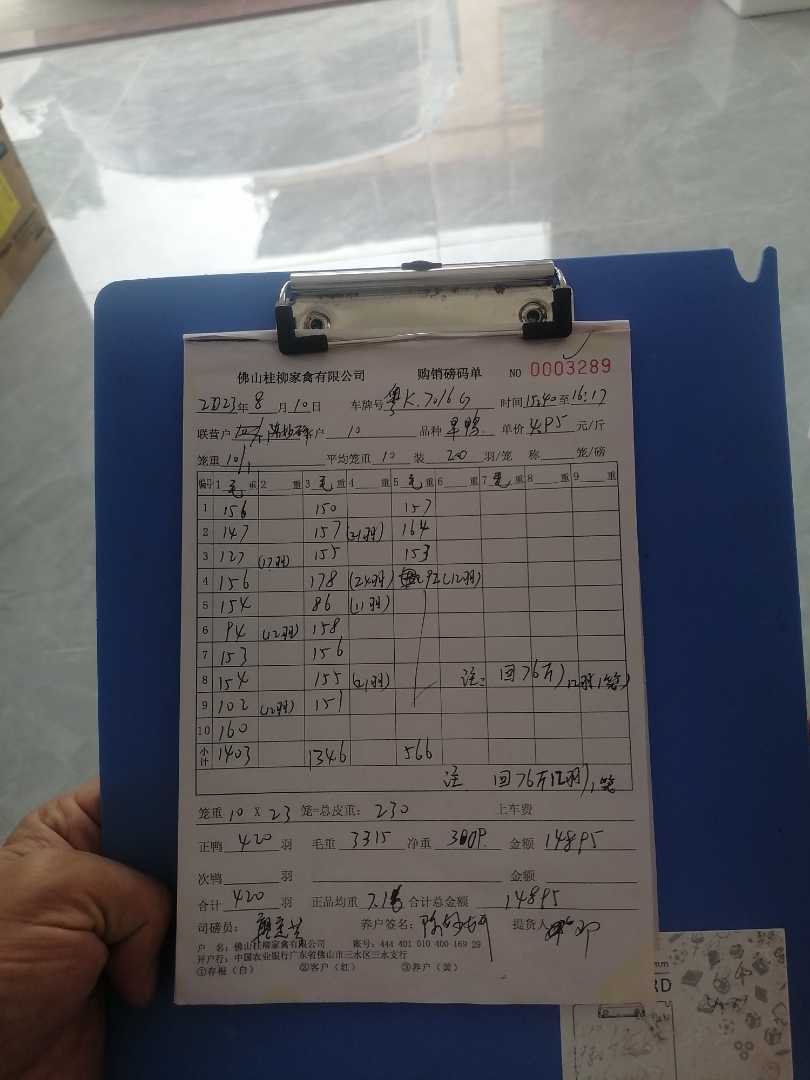 佛山桂柳家禽有限公司 购销磅码单 NO 0003289
2023年8月10日 车牌号 粤K.7016G 时间15:40至16:17
联营户 客户 10 品种 旱鸭 单价4.95元/斤
笼重 10/1 平均笼重 10 装 20 羽/笼 称 笼/磅
编号 1 毛 重 2 重 3 毛 重 4 重 5 毛 重 6 重 7 毛 重 8 重 9 重
1 156 150 157
2 147 157 (21羽) 164
3 127 (17羽) 155 153
4 156 178 (24羽) 92 (12羽)
5 154 86 (11羽)
6 94 (12羽) 158
7 153 156
8 154 155 (21羽) 注: 回76斤) 12羽1笼)
9 102 (12羽) 151
10 160
小计 1403 1346 566
注 回76斤12羽)1笼
笼重 10 X 23 笼=总皮重: 230 上车费
正鸭 420 羽 毛重 3315 净重 3009. 金额 14895
次鸭 羽 金额
合计 420 羽 正品均重 7.16 合计总金额 14895
司磅员: 养户签名: 提货人
户 名: 佛山桂柳家禽有限公司 账号: 444 401 010 400 169 29
开户行: 中国农业银行广东省佛山市三水区三水支行
①存根(白) ②客户(红) ③养户(黄)
mm
RD